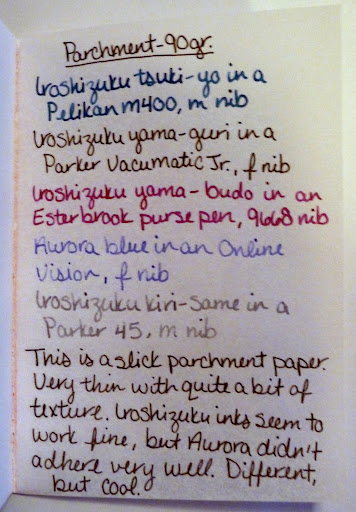 Parchment-90gr.
Iroshizuku tsuki-yo in a
Pelikan M400, m nib
Iroshizuku yama-guri in a
Parker Vacumatic Jr., f nib
Iroshizuku yama-budo in an
Esterbrook purse pen, 9668 nib
Aurora blue in an Online
Vision, f nib
Iroshizuku kiri-same in a
Parker 45, m nib
This is a slick parchment paper.
Very thin with quite a bit of
texture. Iroshizuku inks seem to
work fine, but Aurora didn't
adhere very well. Different,
but cool.